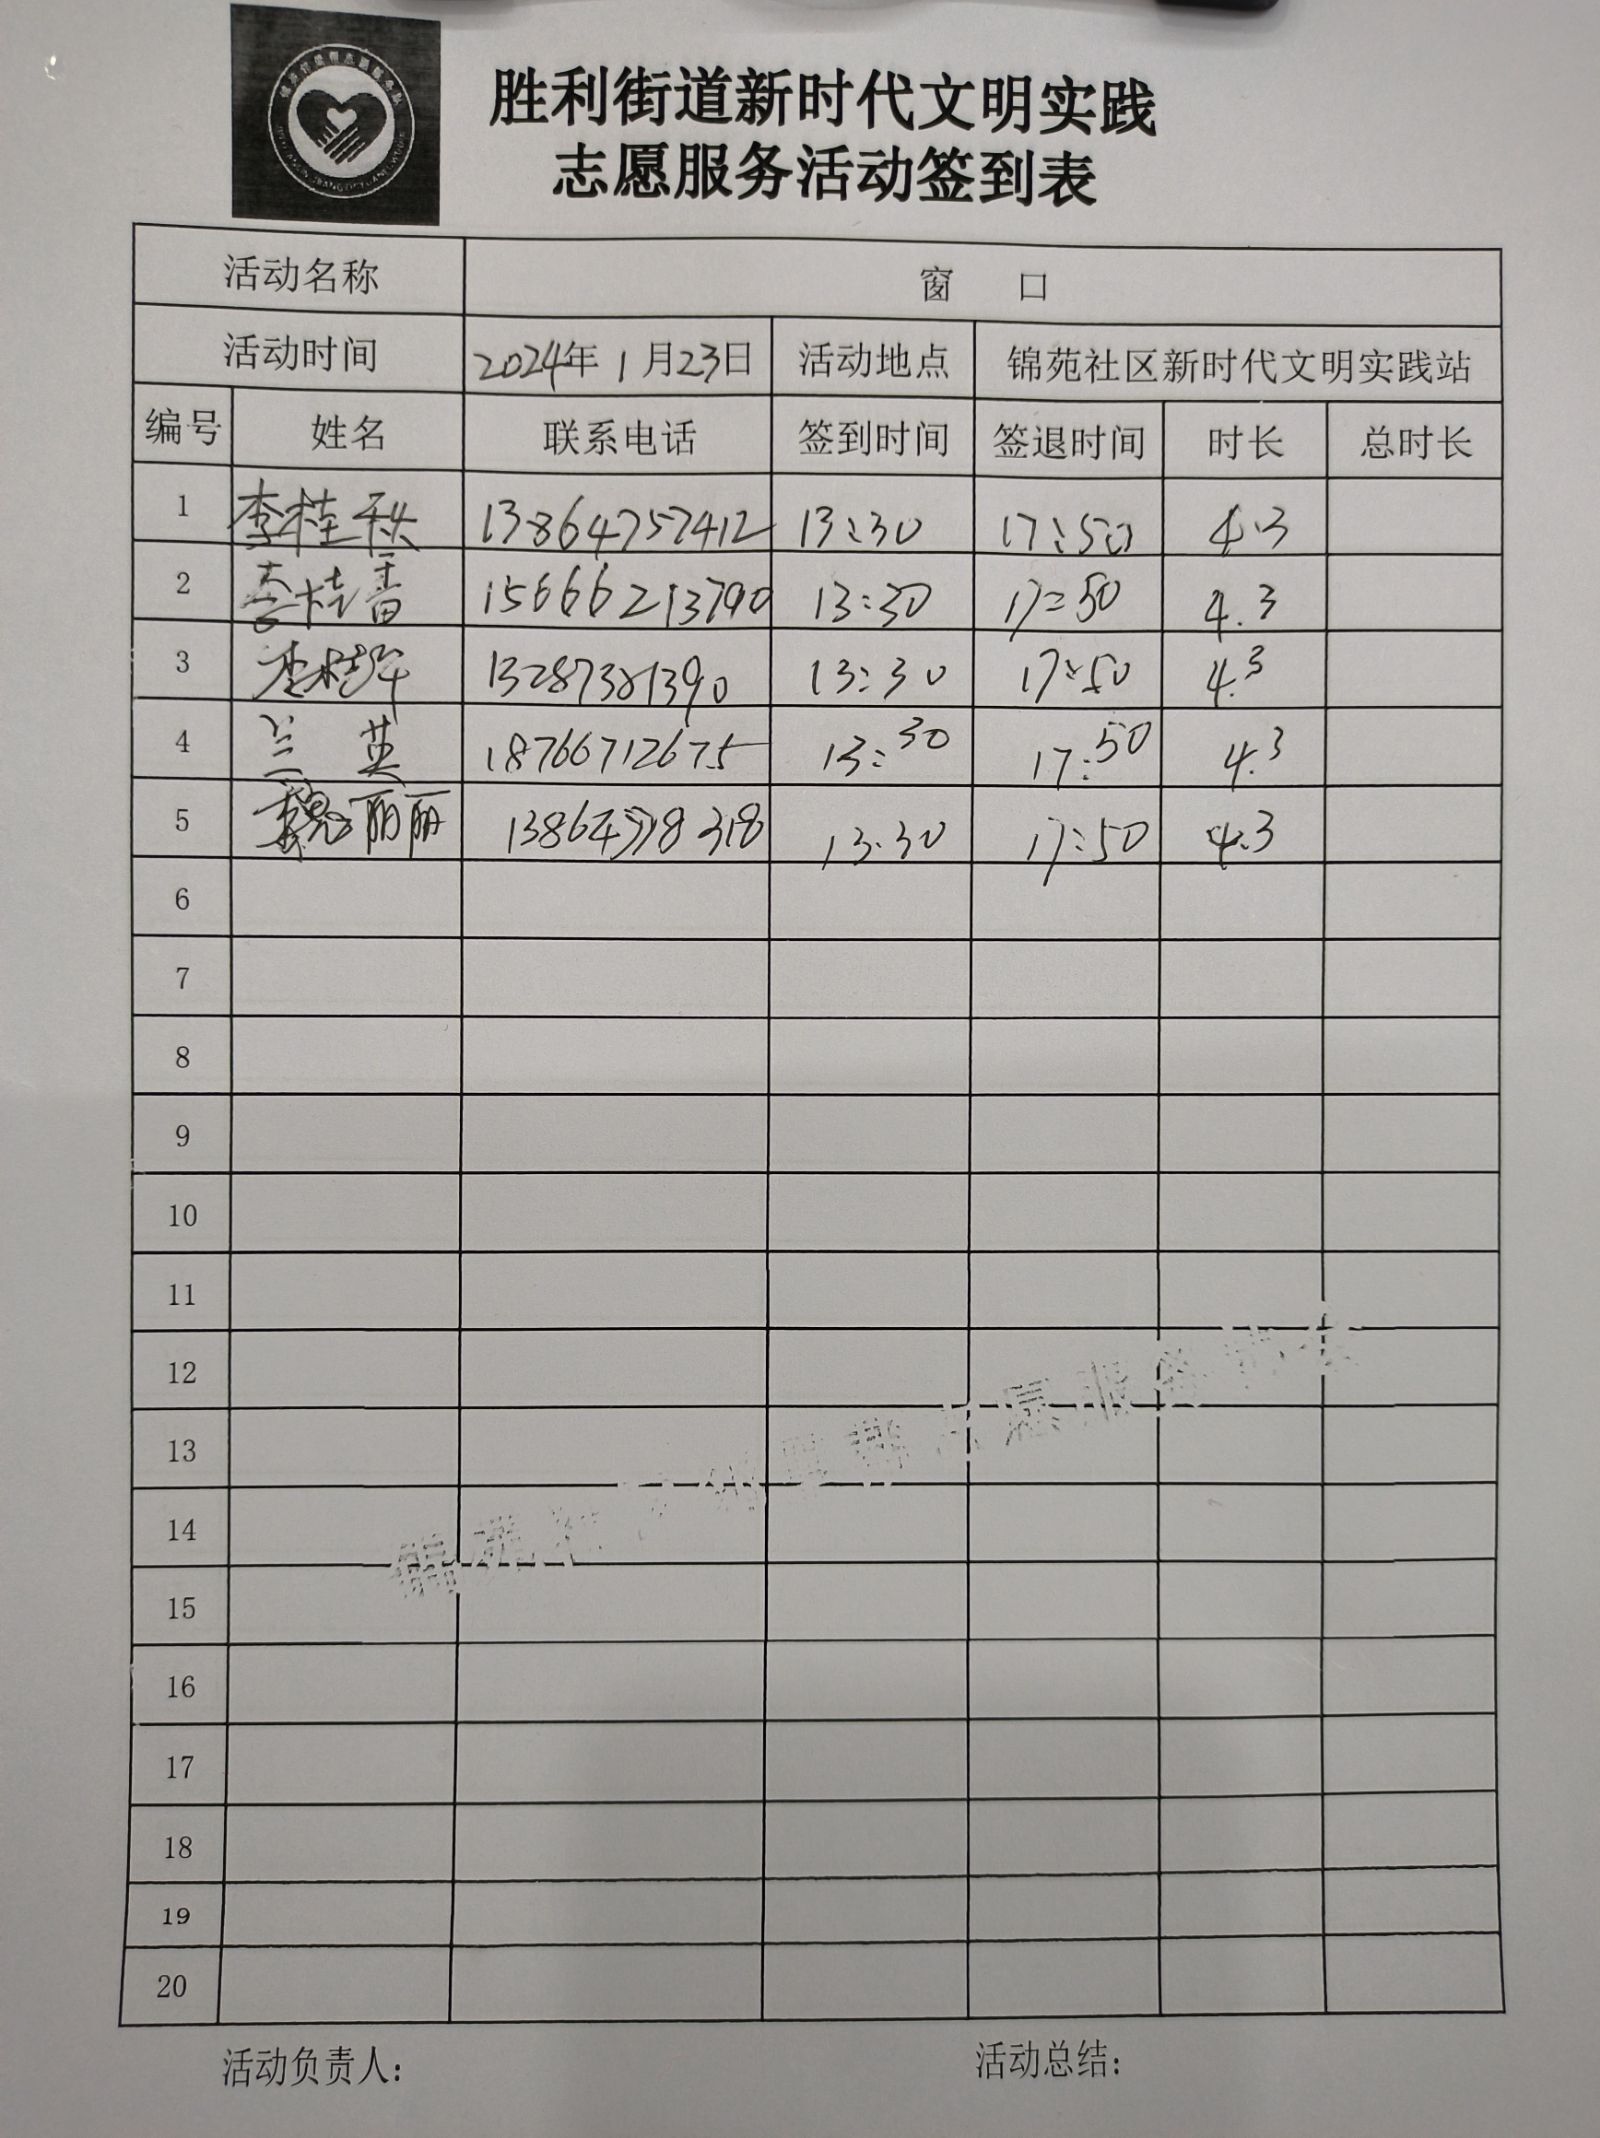 胜利街道新时代文明实践
志愿服务活动签到表
活动名称 窗 口
活动时间 2024年1月23日 活动地点 锦苑社区新时代文明实践站
编号 姓名 联系电话 签到时间 签退时间 时长 总时长
1 李桂秋 13864757412 13:30 17:50 4.3
2 李桂香 15666213790 13:30 17:50 4.3
3 13287381390 13:30 17:50 4.3
4 兰英 18766712675 13:30 17:50 4.3
5 魏丽丽 13:30 17:50 4.3
6
7
8
9
10
11
12
13
14
15
16
17
18
19
20
活动负责人: 活动总结: